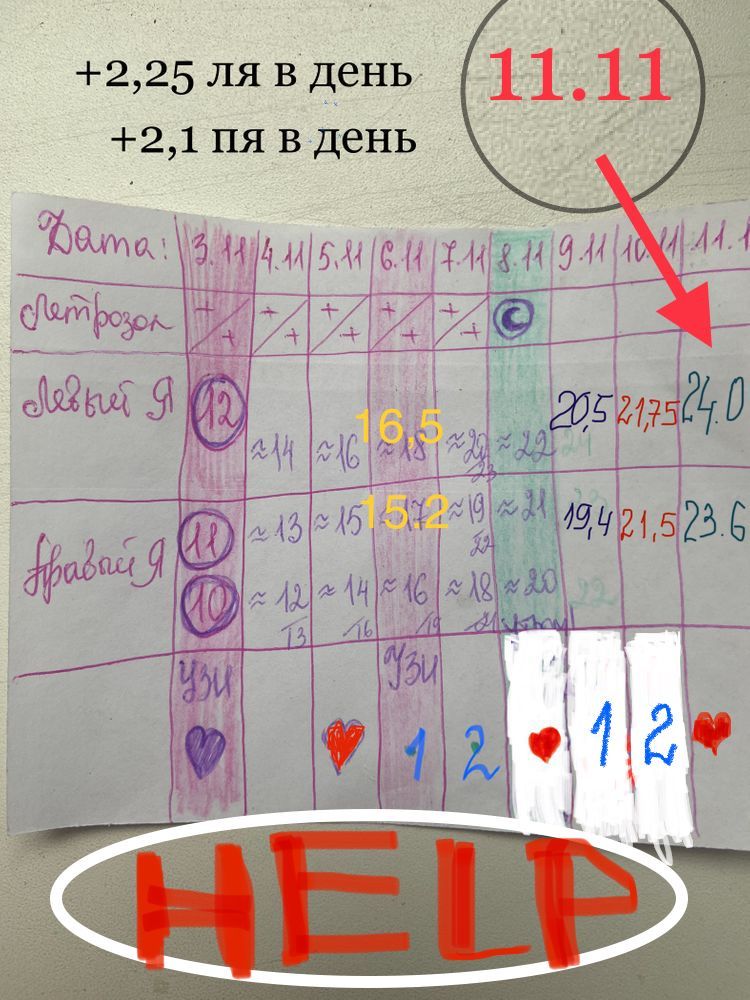 +2,25 ля в день
+2,1 пя в день
11.11
Дата: 3.11 4.11 5.11 6.11 7.11 8.11 9.11 10.11 11.1
Летрозол + + + + + + + + + +
Левый Я 12 ≈14 ≈16 16,5 ≈18 ≈20 23 ≈22 24 20,5 21,75 24.0
Правый Я
11 ≈13 ≈15 15.2 17 ≈19 22 ≈21 23 19,4 21,5 23.6
10 ≈12 13 ≈14 16 ≈16 19 ≈18 21 ≈20 22
УЗИ УЗИ
1 2 1 2
HELP